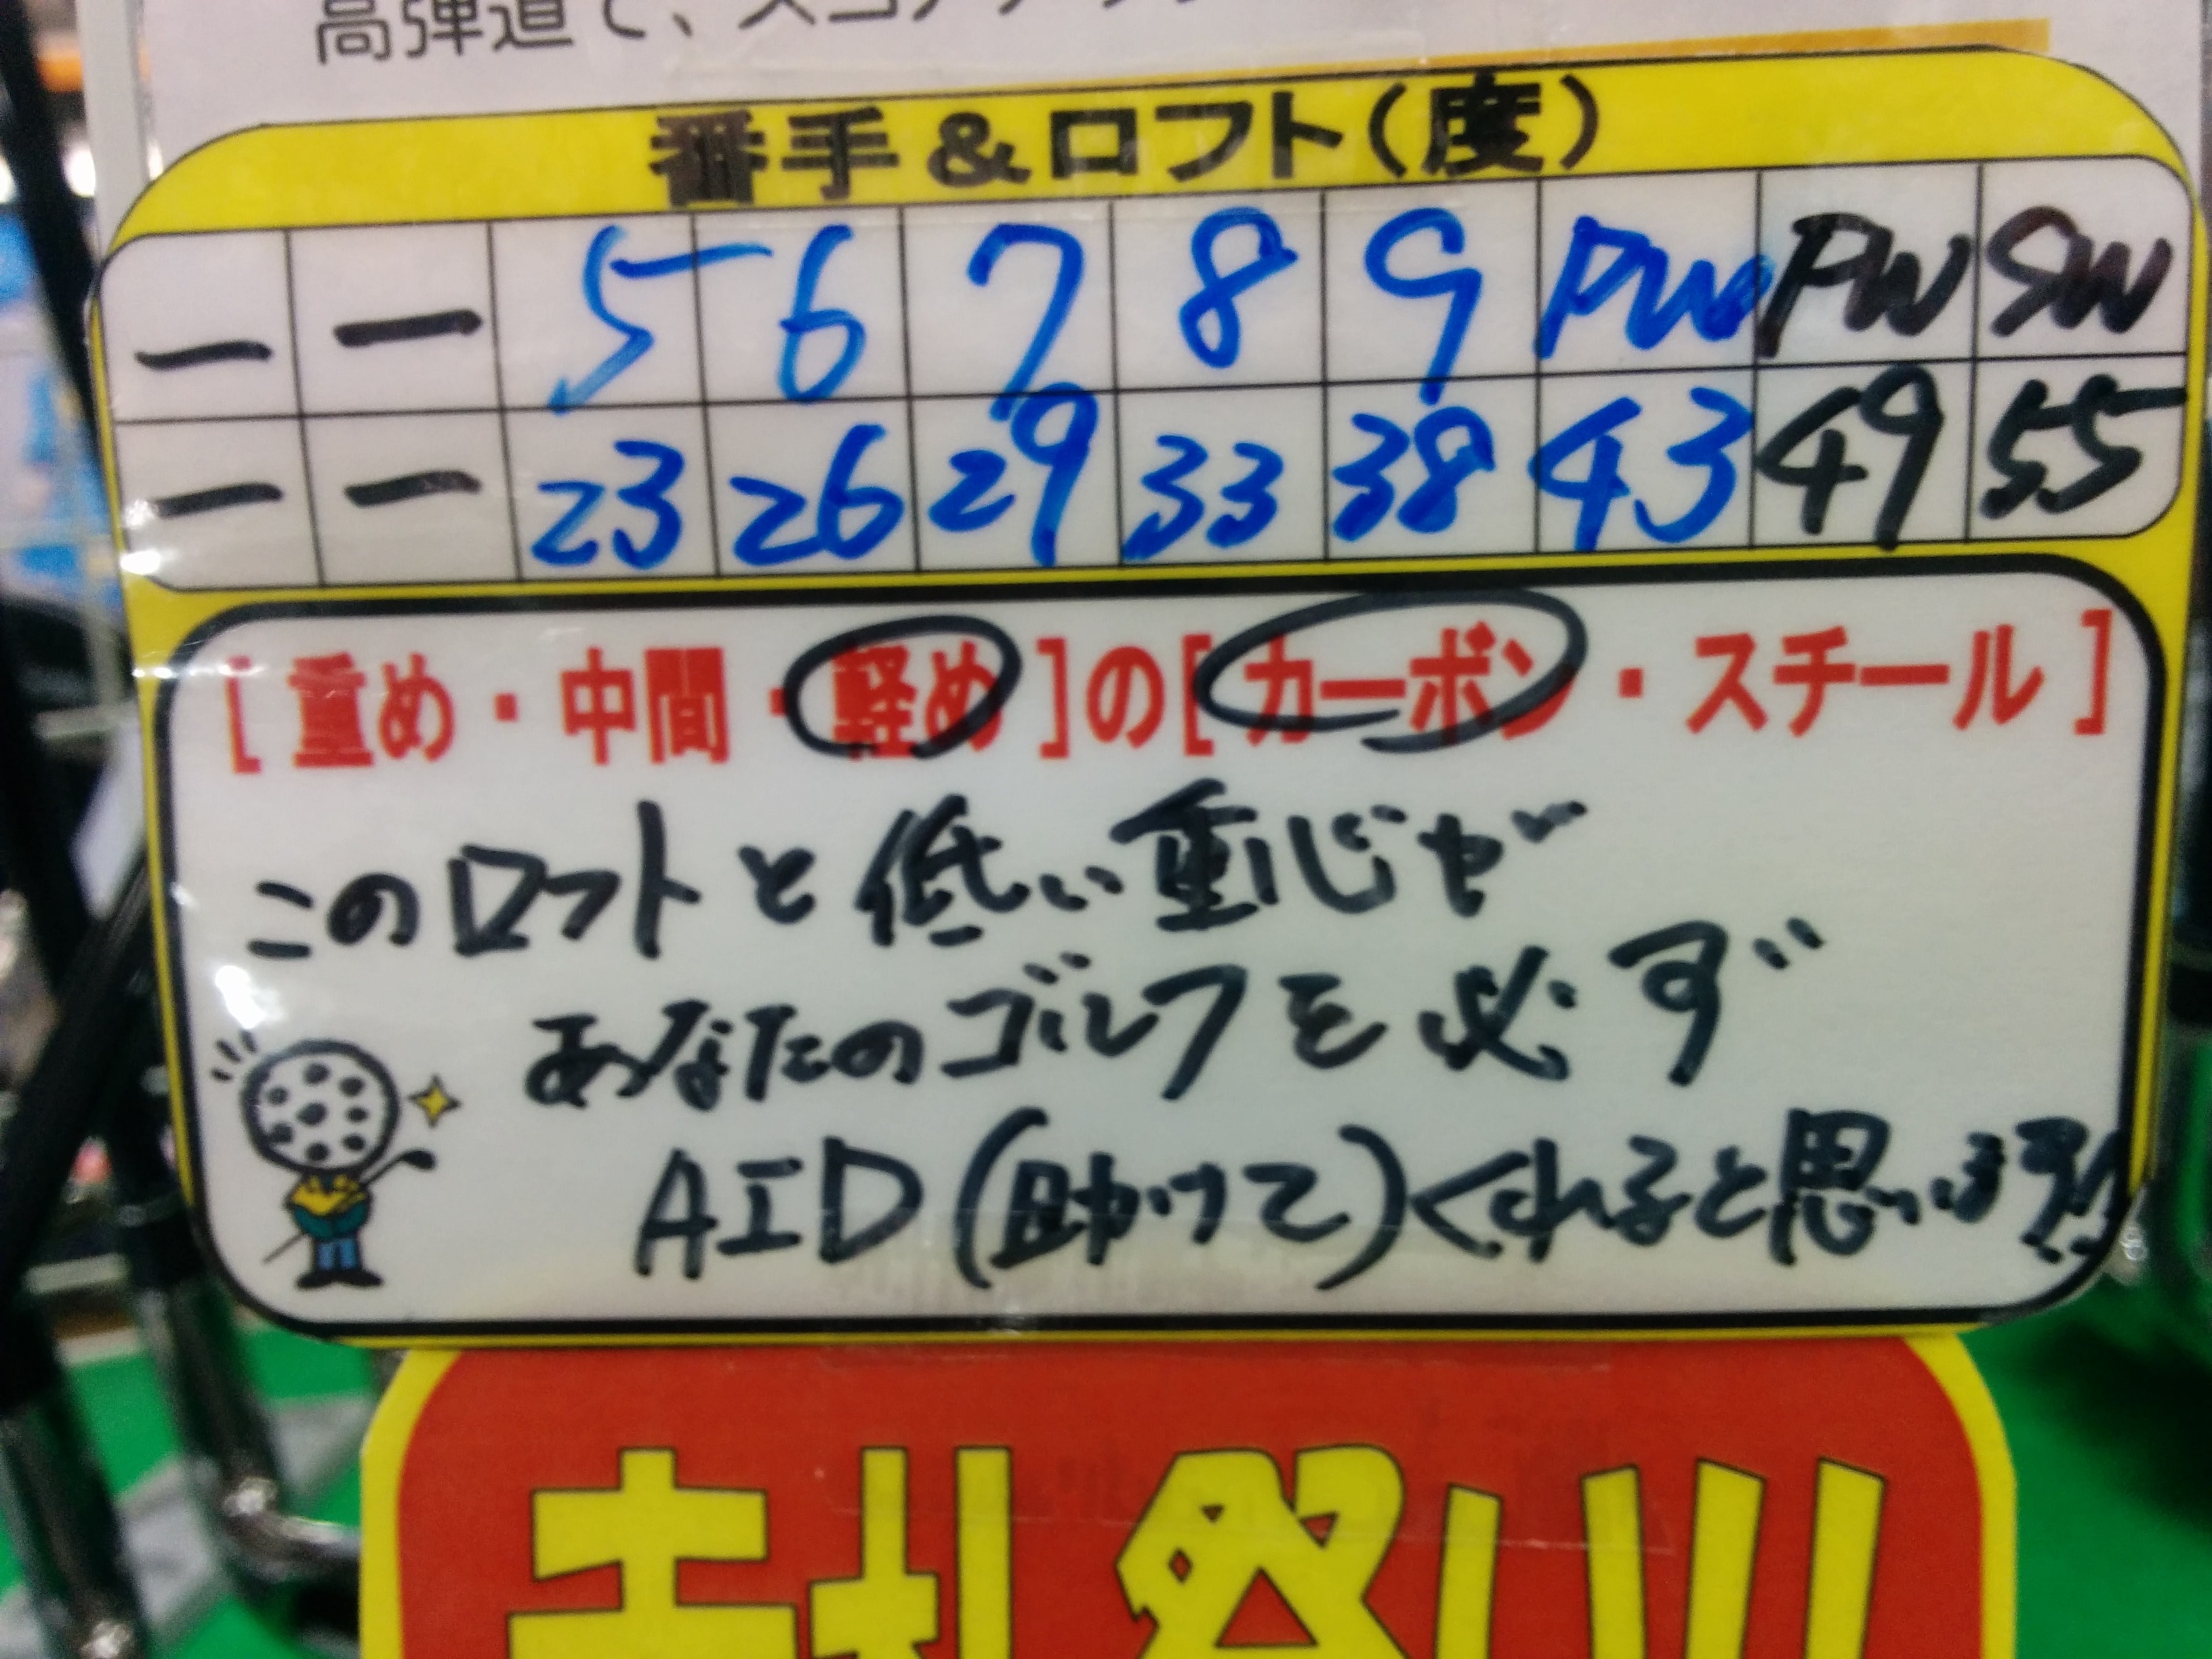 高弾道で、スコアアップ
番手&ロフト(度)
ー ー 5 6 7 8 9 PW PW SW
ー ー 23 26 29 33 38 43 49 55
[重め・中間・軽め]の[カーボン・スチール]
このロフトと低い重心が
あなたのゴルフを必ず
AID(助けて)くれると思います!!